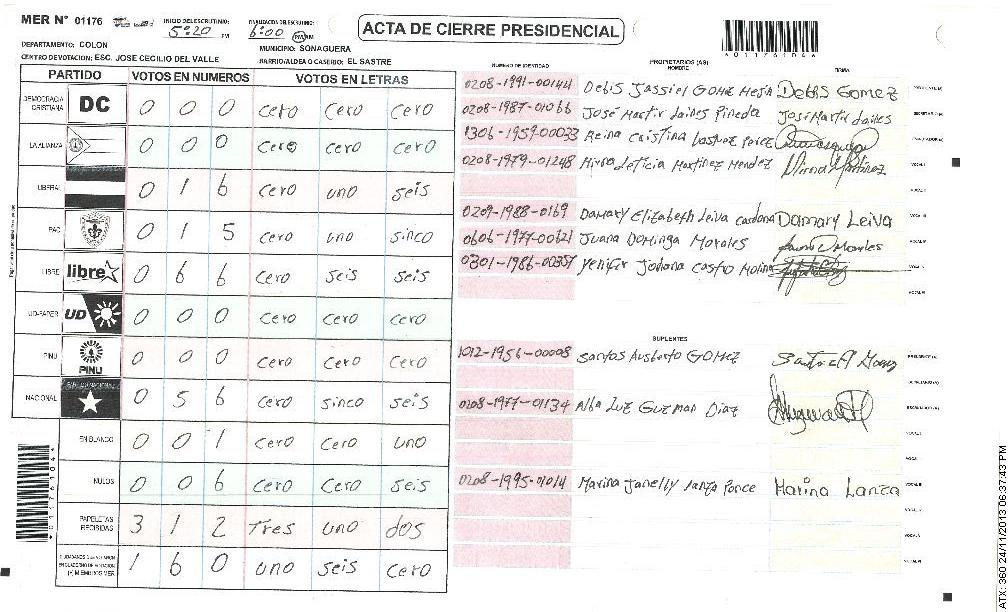 MER N° 01176
INICIO DEL ESCRUTINIO: 5:20 PM
FINALIZACION DEL ESCRUTINIO: 6:00 PM AM
ACTA DE CIERRE PRESIDENCIAL
*011761046*
DEPARTAMENTO: COLON
MUNICIPIO: SONAGUERA
CENTRO DE VOTACION: ESC. JOSE CECILIO DEL VALLE
BARRIO/ALDEA O CASERIO: EL SASTRE
PARTIDO VOTOS EN NUMEROS VOTOS EN LETRAS
DEMOCRACIA CRISTIANA DC 0 0 0 cero cero cero
LA ALIANZA 0 0 0 cero cero cero
LIBERAL 0 1 6 cero uno seis
PAC 0 1 5 cero uno sinco
LIBRE libre 0 6 6 cero seis seis
UD-FAPER UD 0 0 0 cero cero cero
PINU PINU 0 0 0 cero cero cero
NACIONAL 0 5 6 cero sinco seis
EN BLANCO 0 0 1 cero cero uno
NULOS 0 0 6 cero cero seis
PAPELETAS RECIBIDAS 3 1 2 tres uno dos
CIUDADANOS QUE VOTARON EN CUADERNO DE VOTACION (+) MIEMBROS MER 1 6 0 uno seis cero
NUMERO DE IDENTIDAD PROPIETARIOS (AS) NOMBRE FIRMA
0208-1991-00144 Debis Jassiel Gomez Mejia Debis Gomez PRESIDENTE (A)
0208-1987-01066 José Martir Laines Pineda José Martir Laines SECRETARIO (A)
1306-1959-00033 Reina Cristina ESCRUTADOR (A)
0208-1979-01248 Mirna Leticia Martinez Mendez Mirna Martinez VOCAL I
VOCAL II
0209-1988-0169 Damary Elizabeth Leiva Cardona Damary Leiva VOCAL III
0606-1977-00621 Juana Dominga Morales Juana D Morales VOCAL IV
0301-1986-00351 Yenifer Johana Castro Molina VOCAL V
VOCAL VI
SUPLENTES
1012-1956-00008 Santos Ausberto GOMEZ Santos A Gomez PRESIDENTE (A)
SECRETARIO (A)
0208-1977-01134 Alba Luz Guzman Diaz ESCRUTADOR (A)
VOCAL I
VOCAL II
0208-1995-01014 Marina Janelly Lanza Ponce Marina Lanza VOCAL III
VOCAL IV
VOCAL V
VOCAL VI
*011761046*
ATX: 360 24/11/2013 06:37:43 PM